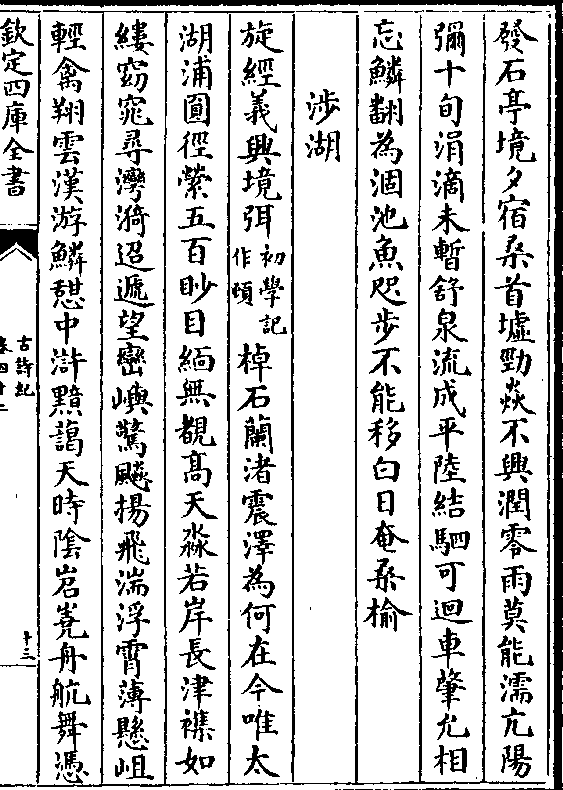 發石亭境夕宿桑首墟勁焱不興潤零雨莫能濡亢陽
彌十旬涓滴未暫舒泉流成平陸結駟可迴車肇允相
忘鱗翻為涸池魚咫步不能移白日奄桑榆
涉湖
旋經義興境弭初學記作頓棹石蘭渚震澤為何在今唯太
湖浦圓徑縈五百眇目緬無覩髙天淼若岸長津襍如
縷窈窕尋灣漪迢遞望巒嶼驚飈揚飛湍浮霄薄懸岨
輕禽翔雲漢游鱗憇中滸黯藹天時陰岧嶤舟航舞憑
欽定四庫全書
古詩紀
卷四十二
十三